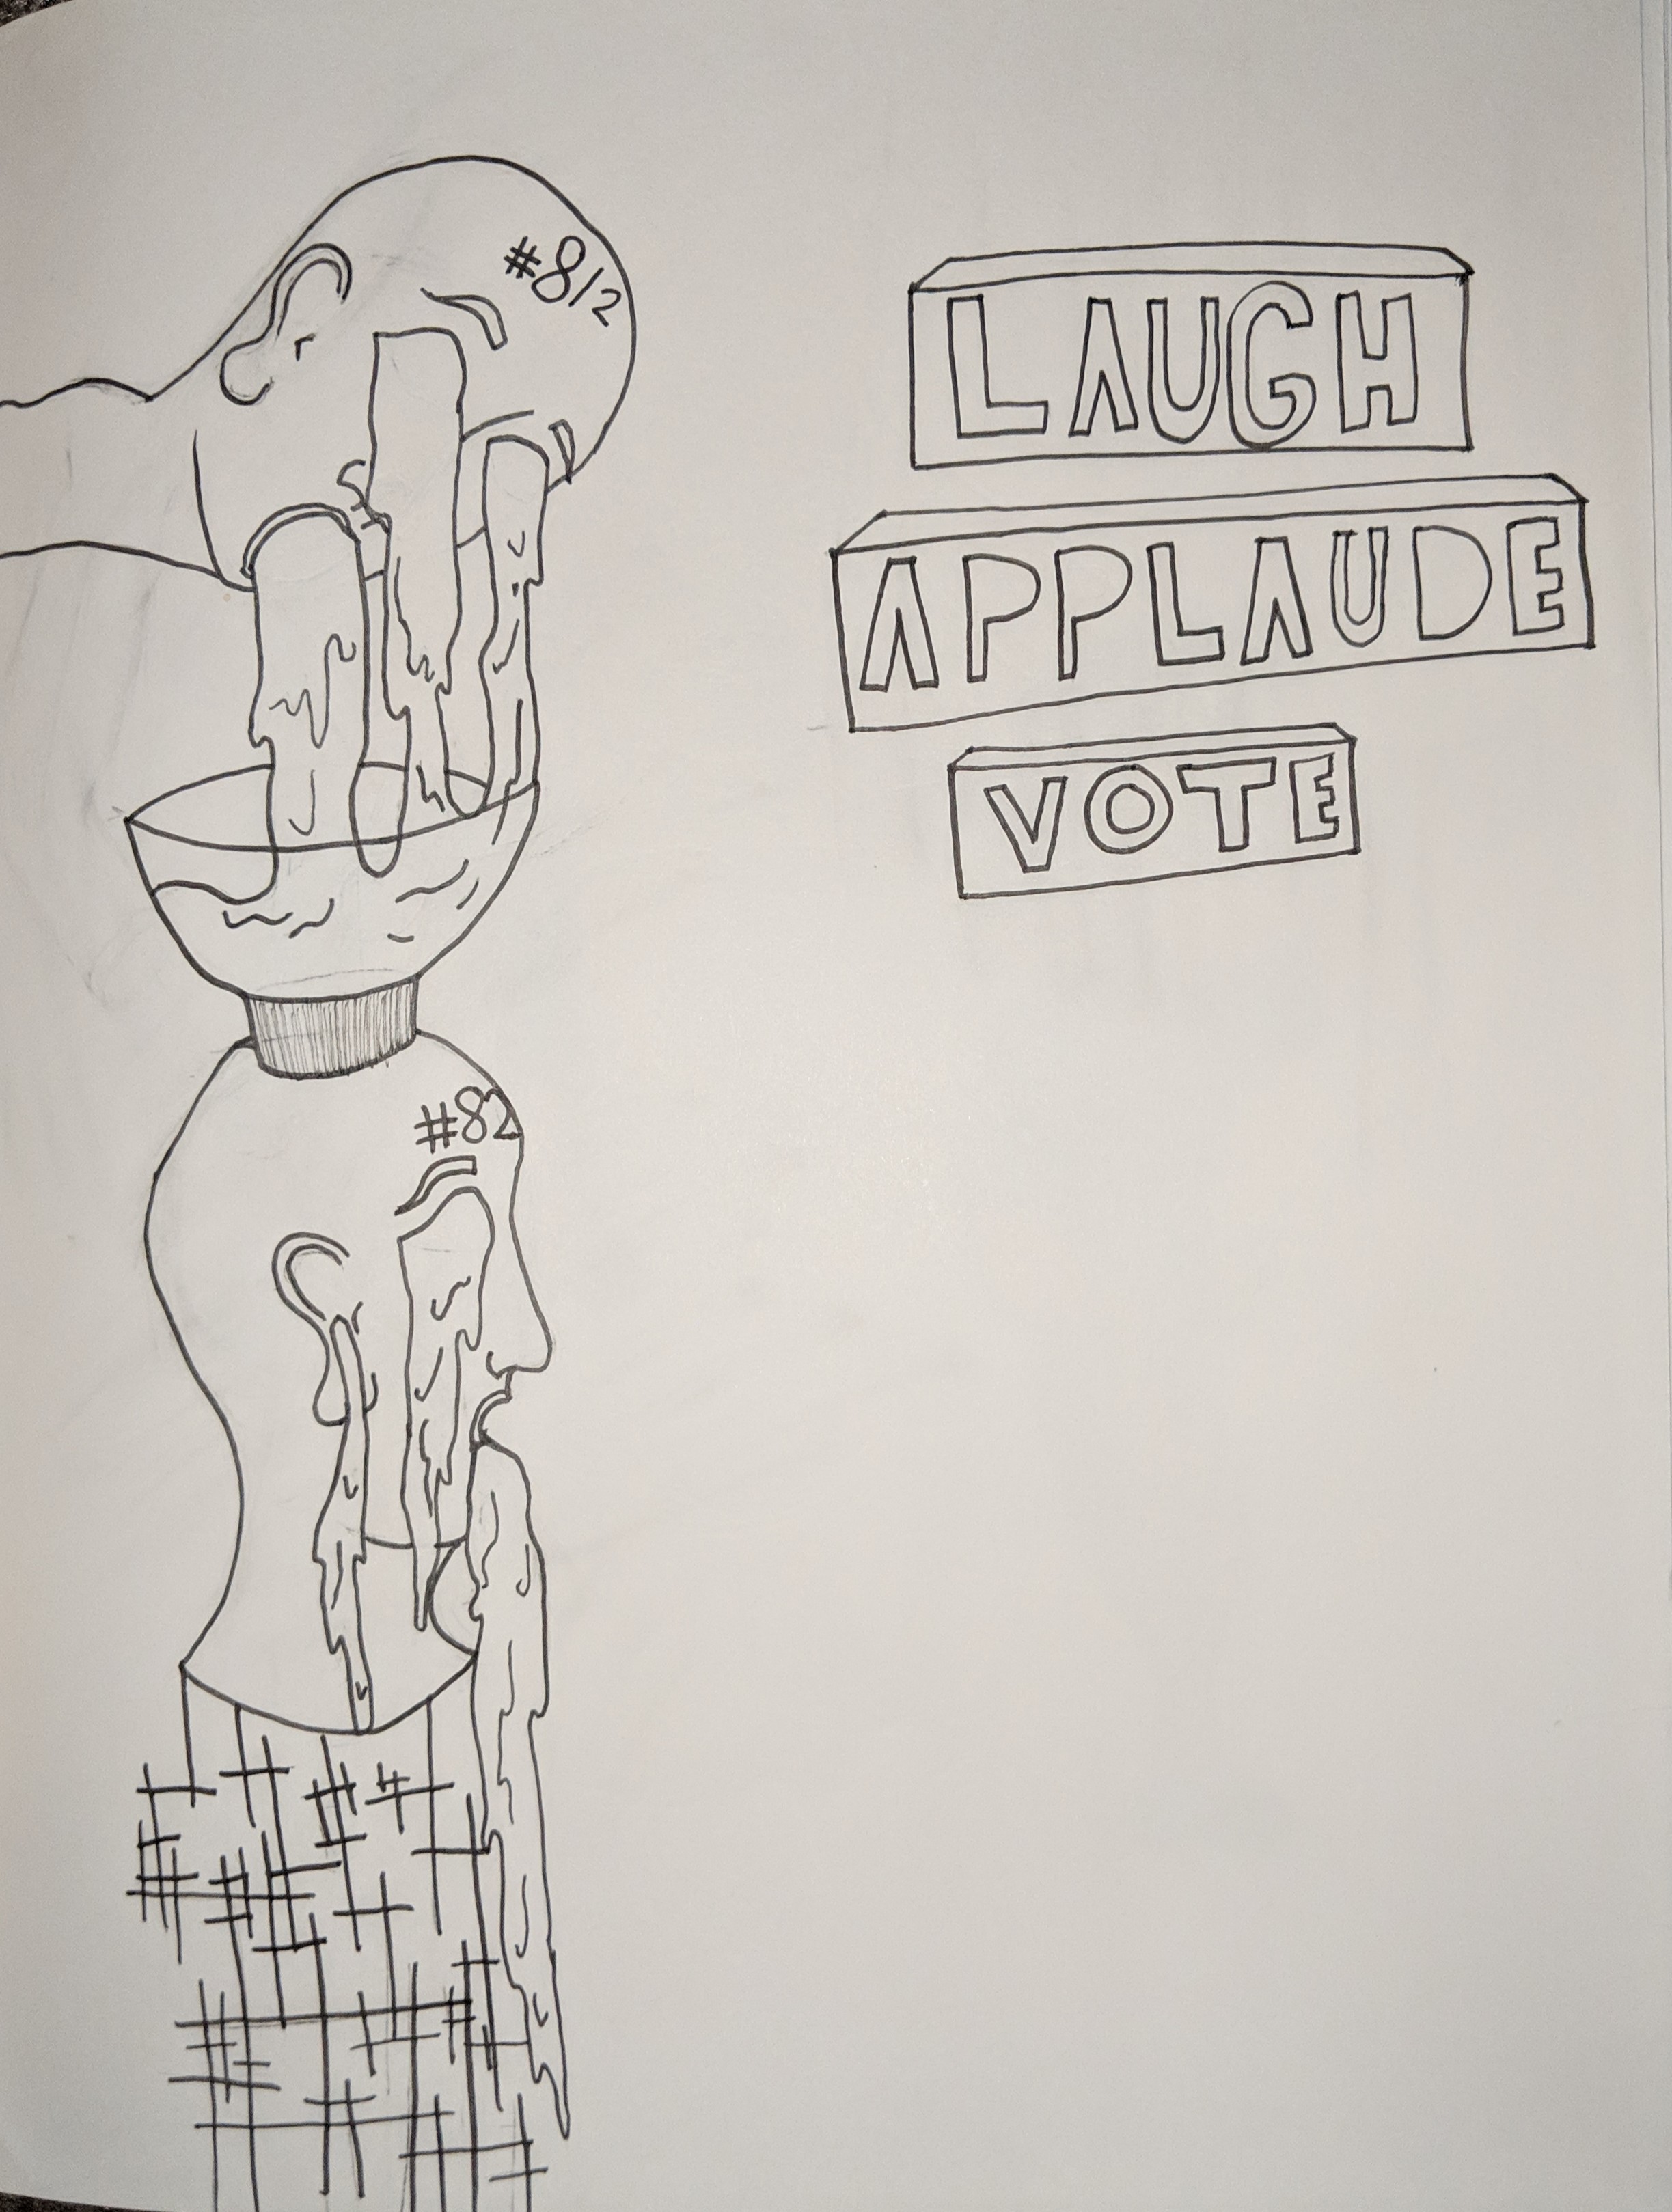 #812
LAUGH
APPLAUDE
VOTE
#82